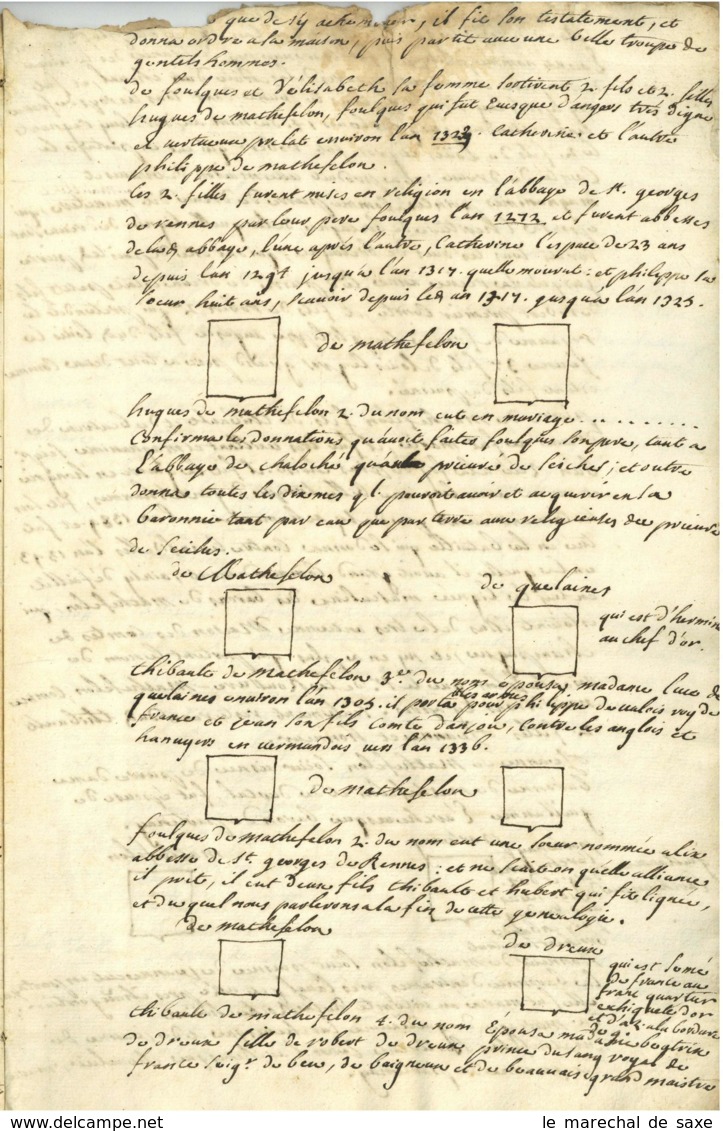 que de s'y acheminer, il fit son testatement, et
donna ordre a la maison, puis partit avec une belle troupe de
gentilshommes.
de foulques et d'élisabeth sa femme sortirent 2. fils et 2. filles
hugues de mathefelon, foulques qui fut Evesque d'angers très digne
et vertueux prelat environ l'an 1324. Catherine et l'autre
philippe de mathefelon.
Ces 2. filles furent mises en religion en l'abbaye de St. georges
de rennes par leur pere foulques l'an 1272 et furent abbesses
de lad. abbaye, l'une après l'autre, Catherine l'espace de 23 ans
depuis l'an 1294 jusqu'a l'an 1317. qu'elle mourut : et philippe sa
soeur huit ans, scavoir depuis led. an 1317. jusqu'a l'an 1325.
de mathefelon
hugues de mathefelon 2. du nom eut en mariage ..........
Confirma les donnations qu'avoit faites foulques son pere, tant a
l'abbaye de chaloché qu'au prieuré de seiches ; et outre
donna toutes les dixmes ql. pouvoit avoir et acquerir en sa
baronnie tant par eau que par terre aux religieuses du prieuré
de seiches.
de Mathefelon
de quelaines
qui est d'hermine
au chef d'or.
thibault de mathefelon 3e. du nom épousa madame luce de
quelaines environ l'an 1305. il porta les armes pour philippe de valois roy de
france et jean son fils Comte d'anjou, contre les anglois et
hanuyers en vermandois vers l'an 1336.
de mathefelon
foulques de mathefelon 2. du nom eut une soeur nommée alix
abbesse de St. georges de Rennes : et ne scait on quelle alliance
il prit, il eut deux fils thibault et hubert qui fit lignée,
et duquel nous parlerons a la fin de cette genealogie.
de mathefelon
de dreux
qui est semé
de france au
franc quartier
echiqueté d'or
et d'az. a la bordure
thibault de mathefelon 4. du nom Épousa madame beatrix
de dreux fille de robert de dreux prince du sang royal de
france Seigr. de beu, de baigneux et de beaumais grand maistre
le marechal de saxe